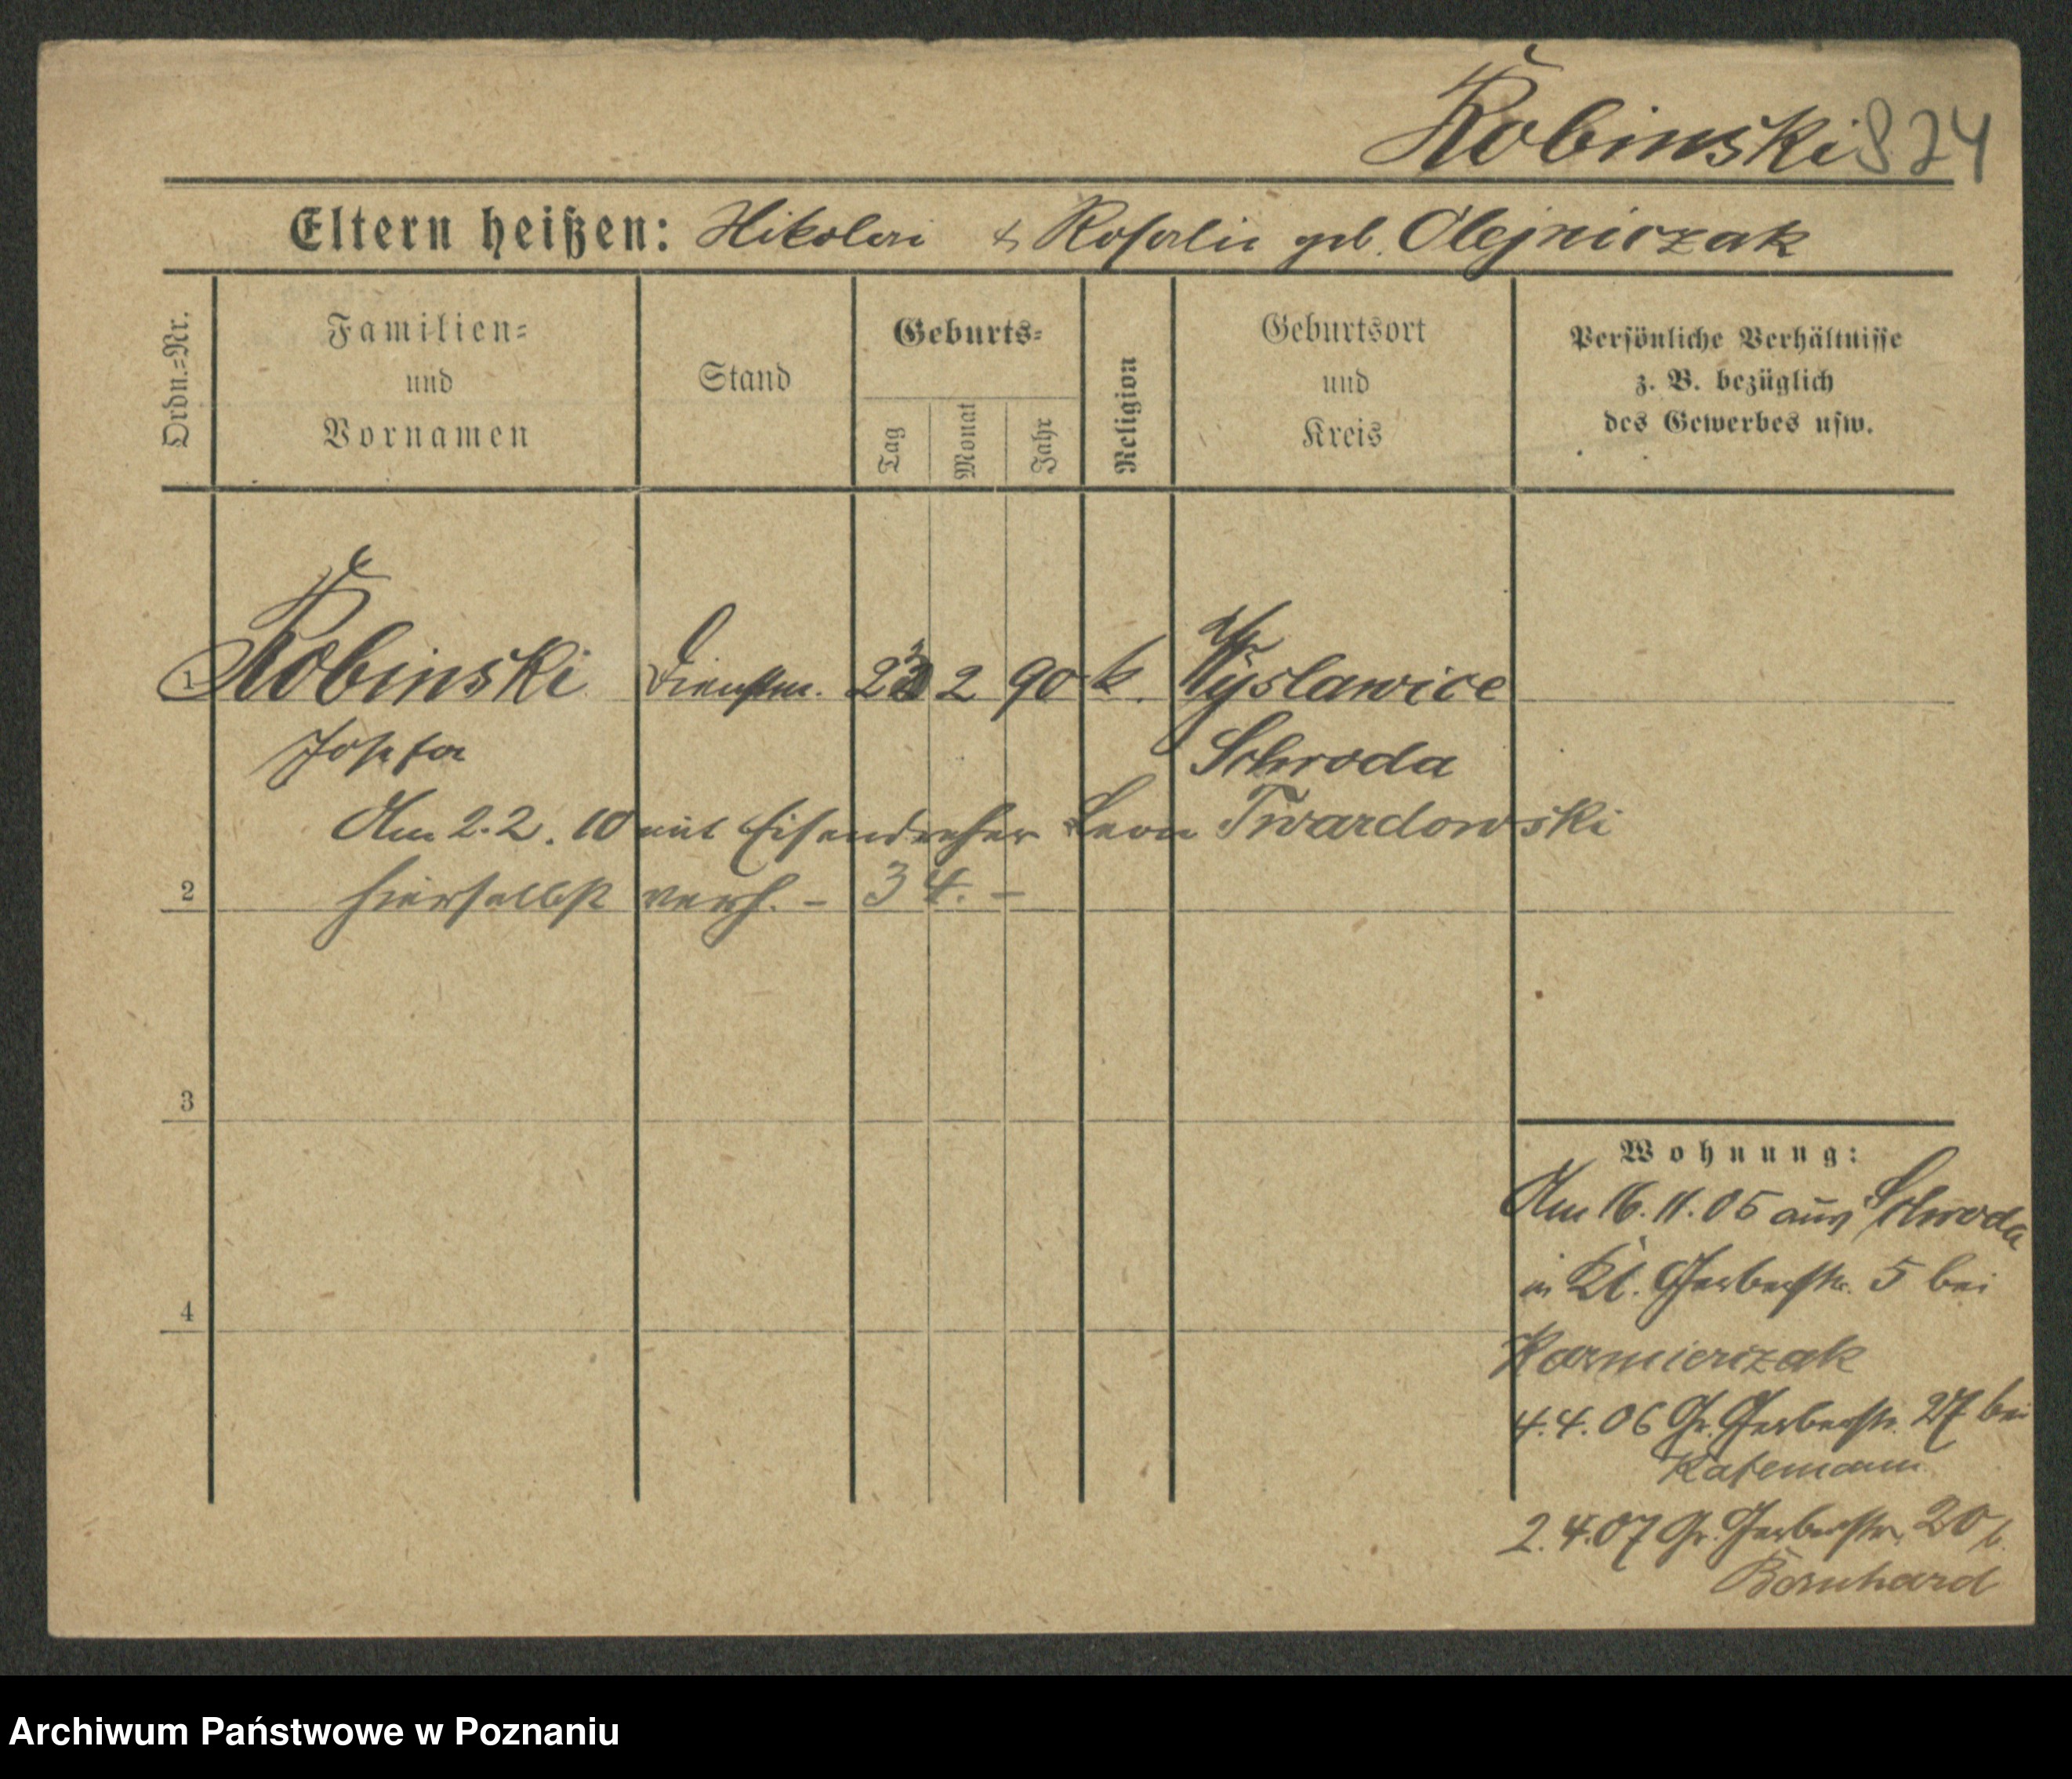 Kobinski 824
Eltern heißen: Nikolai & Rosalie geb. Olejniczak
Ordn.=Nr.
Familien=
und
Vornamen
Stand
Geburts=
Tag
Monat
Jahr
Religion
Geburtsort
und
Kreis
Persönliche Verhältnisse
z. B. bezüglich
des Gewerbes usw.
1 Kobinski Dienstm. 2 90 k. Wyslawice
Josefa Schroda
Am 2.2.10 mit Eisendreher Leon Twardowski
2 hierselbst verh. – 34. –
3
4
Wohnung:
Am 16.11.05 aus Schroda
in Kl. Gerberstr. 5 bei
Kazmierczak
4.4.06 Gr. Gerberstr. 27 bei
2.4.07 Gr. Gerberstr. 20 b.
Archiwum Państwowe w Poznaniu